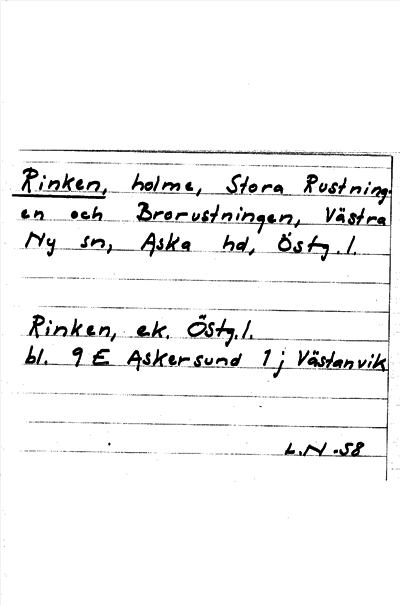 Rinken, holme, Stora Rustning-
en och Brorustningen, Västra
Ny sn, Aska hd, Östg.l.
Rinken, ek. Östg.l.
bl. 9 E Askersund 1 j Västanvik
L.N -58